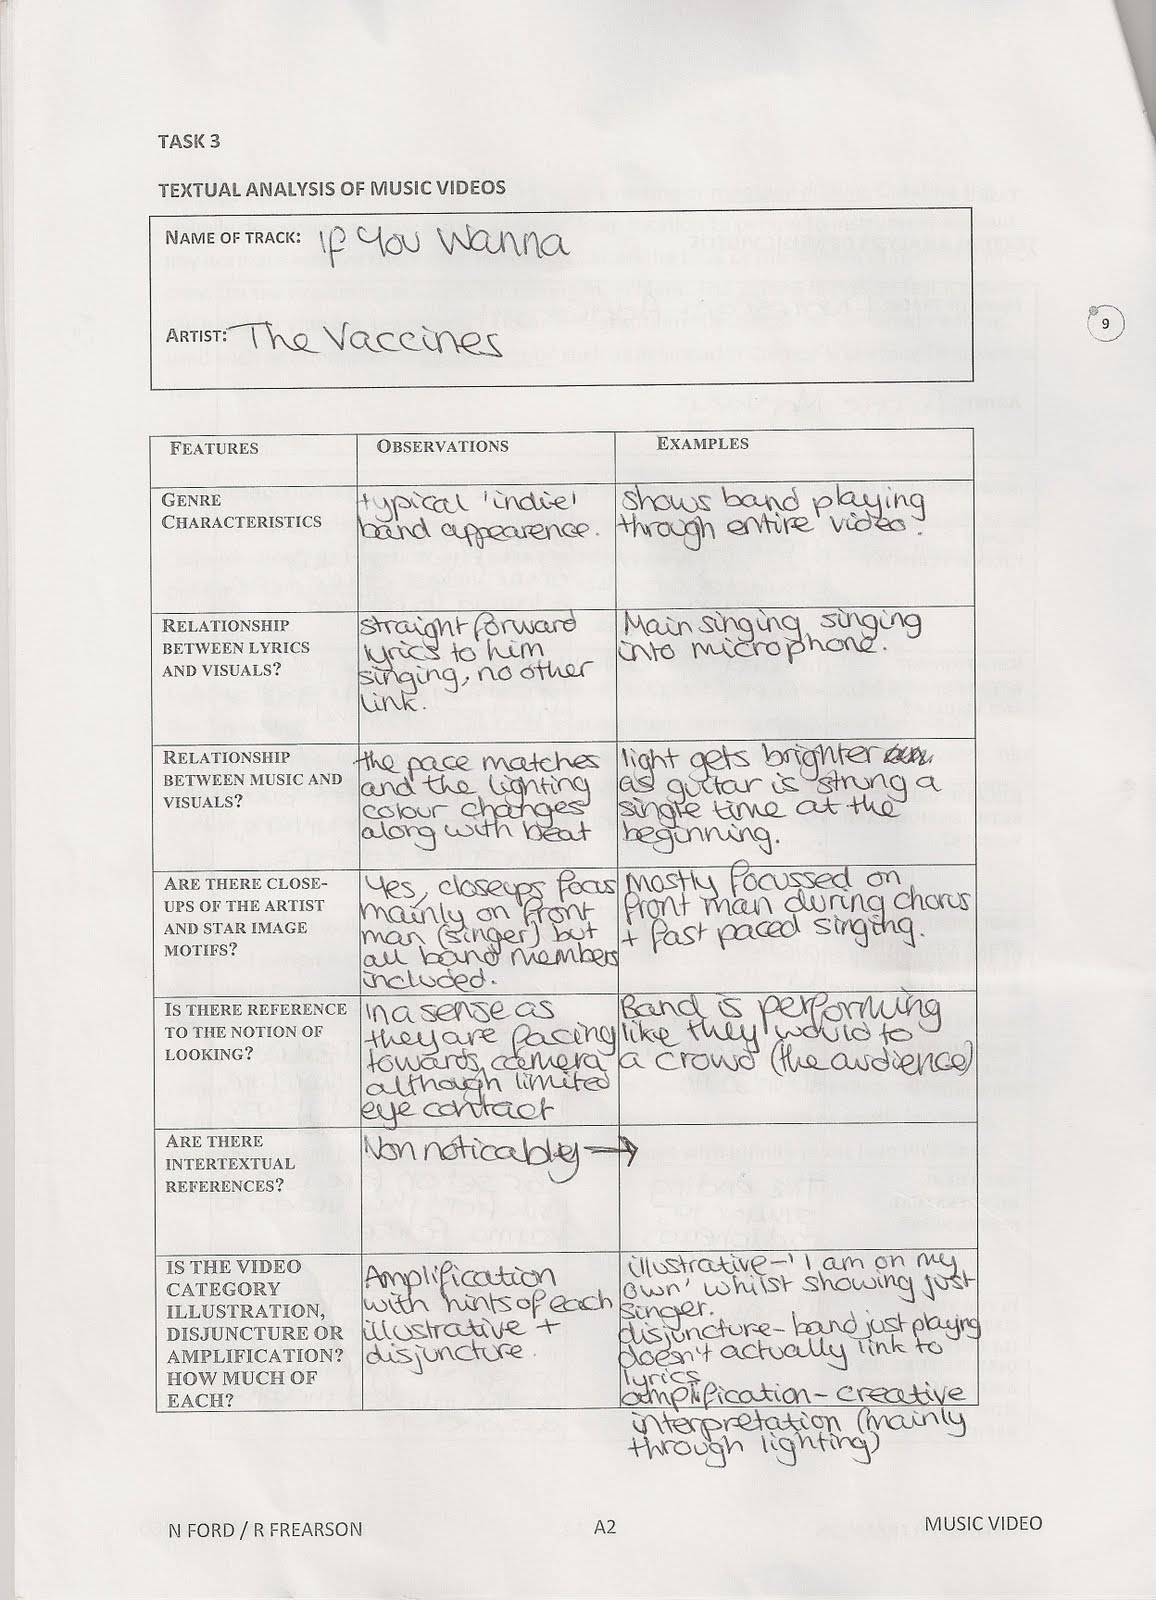 TASK 3
TEXTUAL ANALYSIS OF MUSIC VIDEOS
NAME OF TRACK: If You Wanna
ARTIST: The Vaccines
9
FEATURES
OBSERVATIONS
EXAMPLES
GENRE
CHARACTERISTICS
typical 'indie'
band appearence.
shows band playing
through entire video.
RELATIONSHIP
BETWEEN LYRICS
AND VISUALS?
straight forward
lyrics to him
singing, no other
link.
Main singing singing
into microphone.
RELATIONSHIP
BETWEEN MUSIC AND
VISUALS?
the pace matches
and the lighting
colour changes
along with beat
light gets brighter
as guitar is strung a
single time at the
beginning.
ARE THERE CLOSE-
UPS OF THE ARTIST
AND STAR IMAGE
MOTIFS?
Yes, closeups focus
mainly on front
man (singer) but
all band members
included.
Mostly focussed on
front man during chorus
+ fast paced singing.
IS THERE REFERENCE
TO THE NOTION OF
LOOKING?
In a sense as
they are facing
towards camera
although limited
eye contact
Band is performing
like they would to
a crowd (the audience)
ARE THERE
INTERTEXTUAL
REFERENCES?
Non noticably →
IS THE VIDEO
CATEGORY
ILLUSTRATION,
DISJUNCTURE OR
AMPLIFICATION?
HOW MUCH OF
EACH?
Amplification
with hints of each
illustrative +
disjuncture.
illustrative - 'I am on my
own' whilst showing just
singer.
disjuncture - band just playing
doesn't actually link to
lyrics
amplification - creative
interpretation (mainly
through lighting)
N FORD / R FREARSON
A2
MUSIC VIDEO